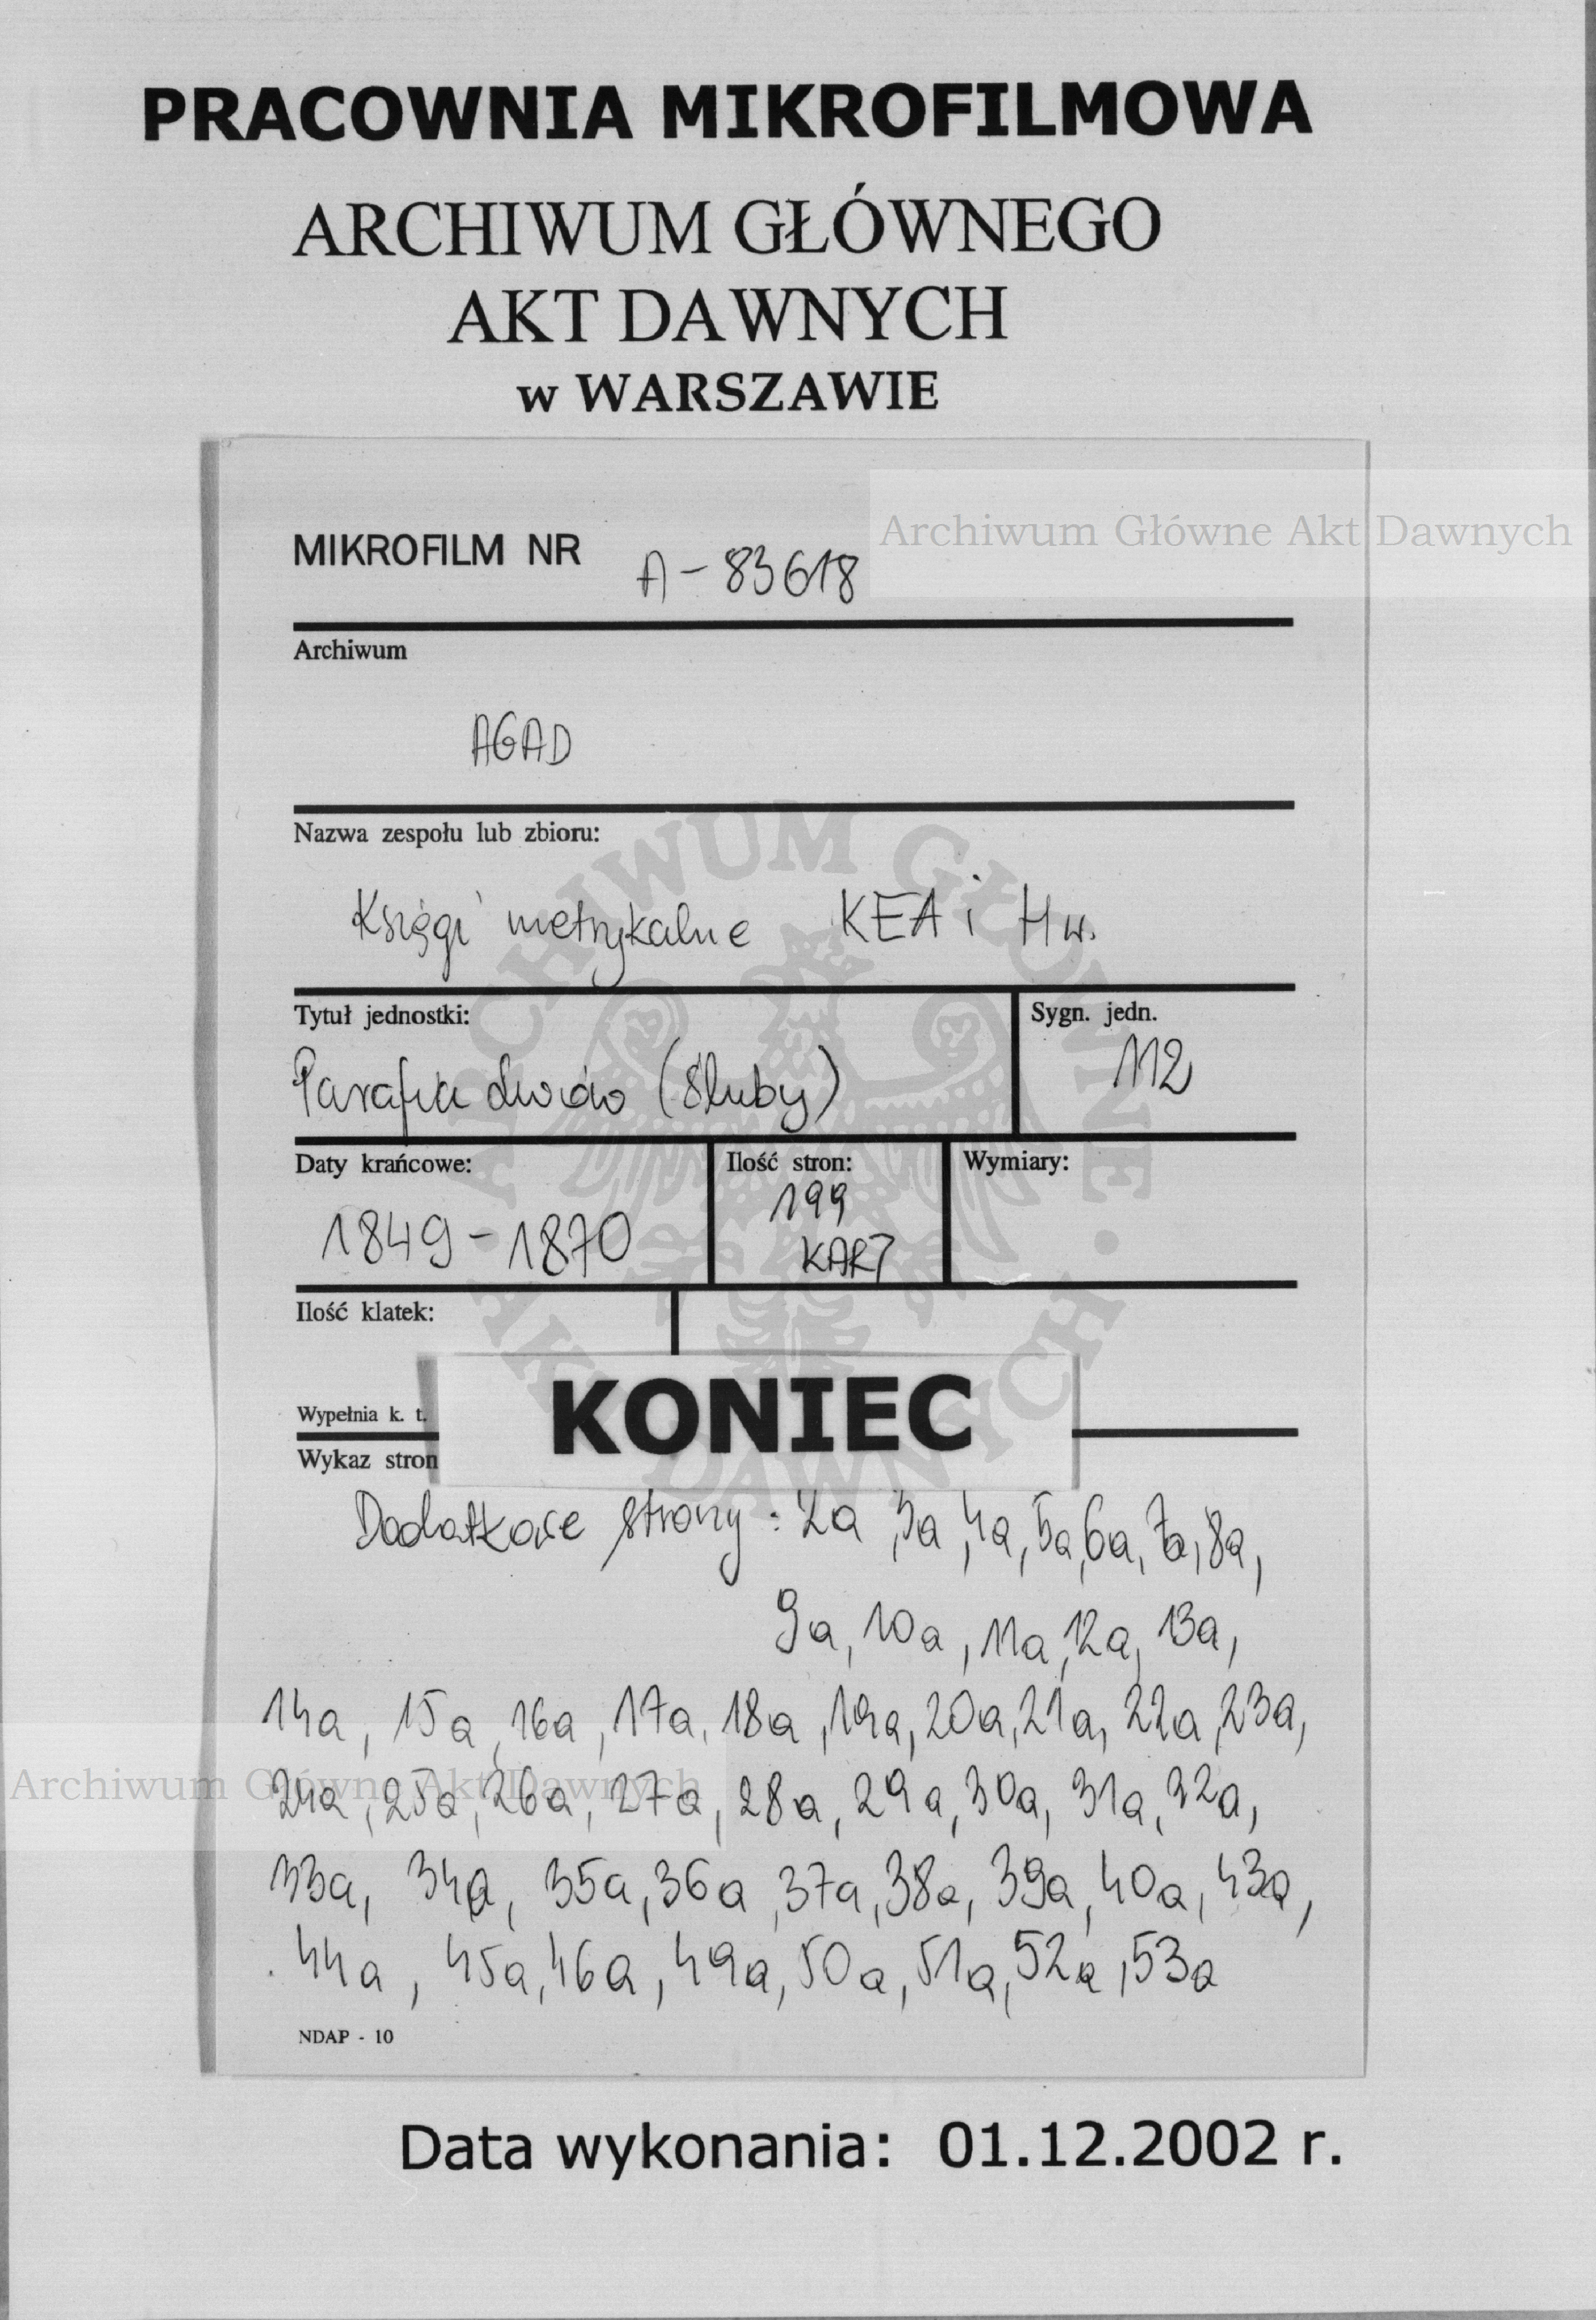 PRACOWNIA MIKROFILMOWA
ARCHIWUM GŁÓWNEGO
AKT DAWNYCH
w WARSZAWIE
Archiwum Główne Akt Dawnych
MIKROFILM NR A-83618
Archiwum
AGAD
Nazwa zespołu lub zbioru:
Księgi metrykalne KEA i Hw.
Tytuł jednostki: Sygn. jedn.
Parafia Lwów (śluby) 112
Daty krańcowe: Ilość stron: Wymiary:
1849-1870 199
KART
Ilość klatek:
ARCHIWUM GŁÓWNE · AKT DAWNYCH ·
KONIEC
Wypełnia k. t.
Wykaz stron
Dodatkowe strony: 2a, 3a, 4a, 5a, 6a, 7a, 8a,
9a, 10a, 11a, 12a, 13a,
14a, 15a, 16a, 17a, 18a, 19a, 20a, 21a, 22a, 23a,
Archiwum Główne Akt Dawnych
24a, 25a, 26a, 27a, 28a, 29a, 30a, 31a, 32a,
33a, 34a, 35a, 36a, 37a, 38a, 39a, 40a, 43a,
44a, 45a, 46a, 49a, 50a, 51a, 52a, 53a
NDAP - 10
Data wykonania: 01.12.2002 r.